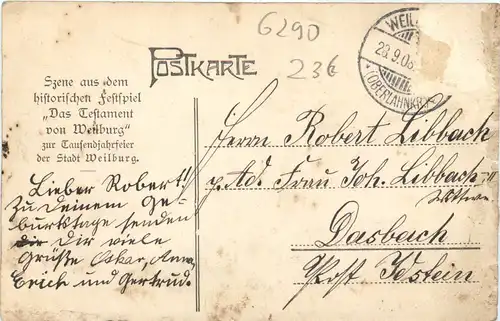 6290
POSTKARTE
236
WEIL
28.9.06
(OBERLAHNKR.)
Szene aus dem
historischen Festspiel
„Das Testament
von Weilburg"
zur Tausendjahrfeier
der Stadt Weilburg.
Herrn Robert Libbach
p. Ad. Frau Joh. Libbach
Wittwe
Dasbach
Post Idstein
Lieber Robert!
Zu Deinem Ge-
burtstage senden
dir Dir viele
Grüße Oskar, Anna,
Erich und Gertrud.